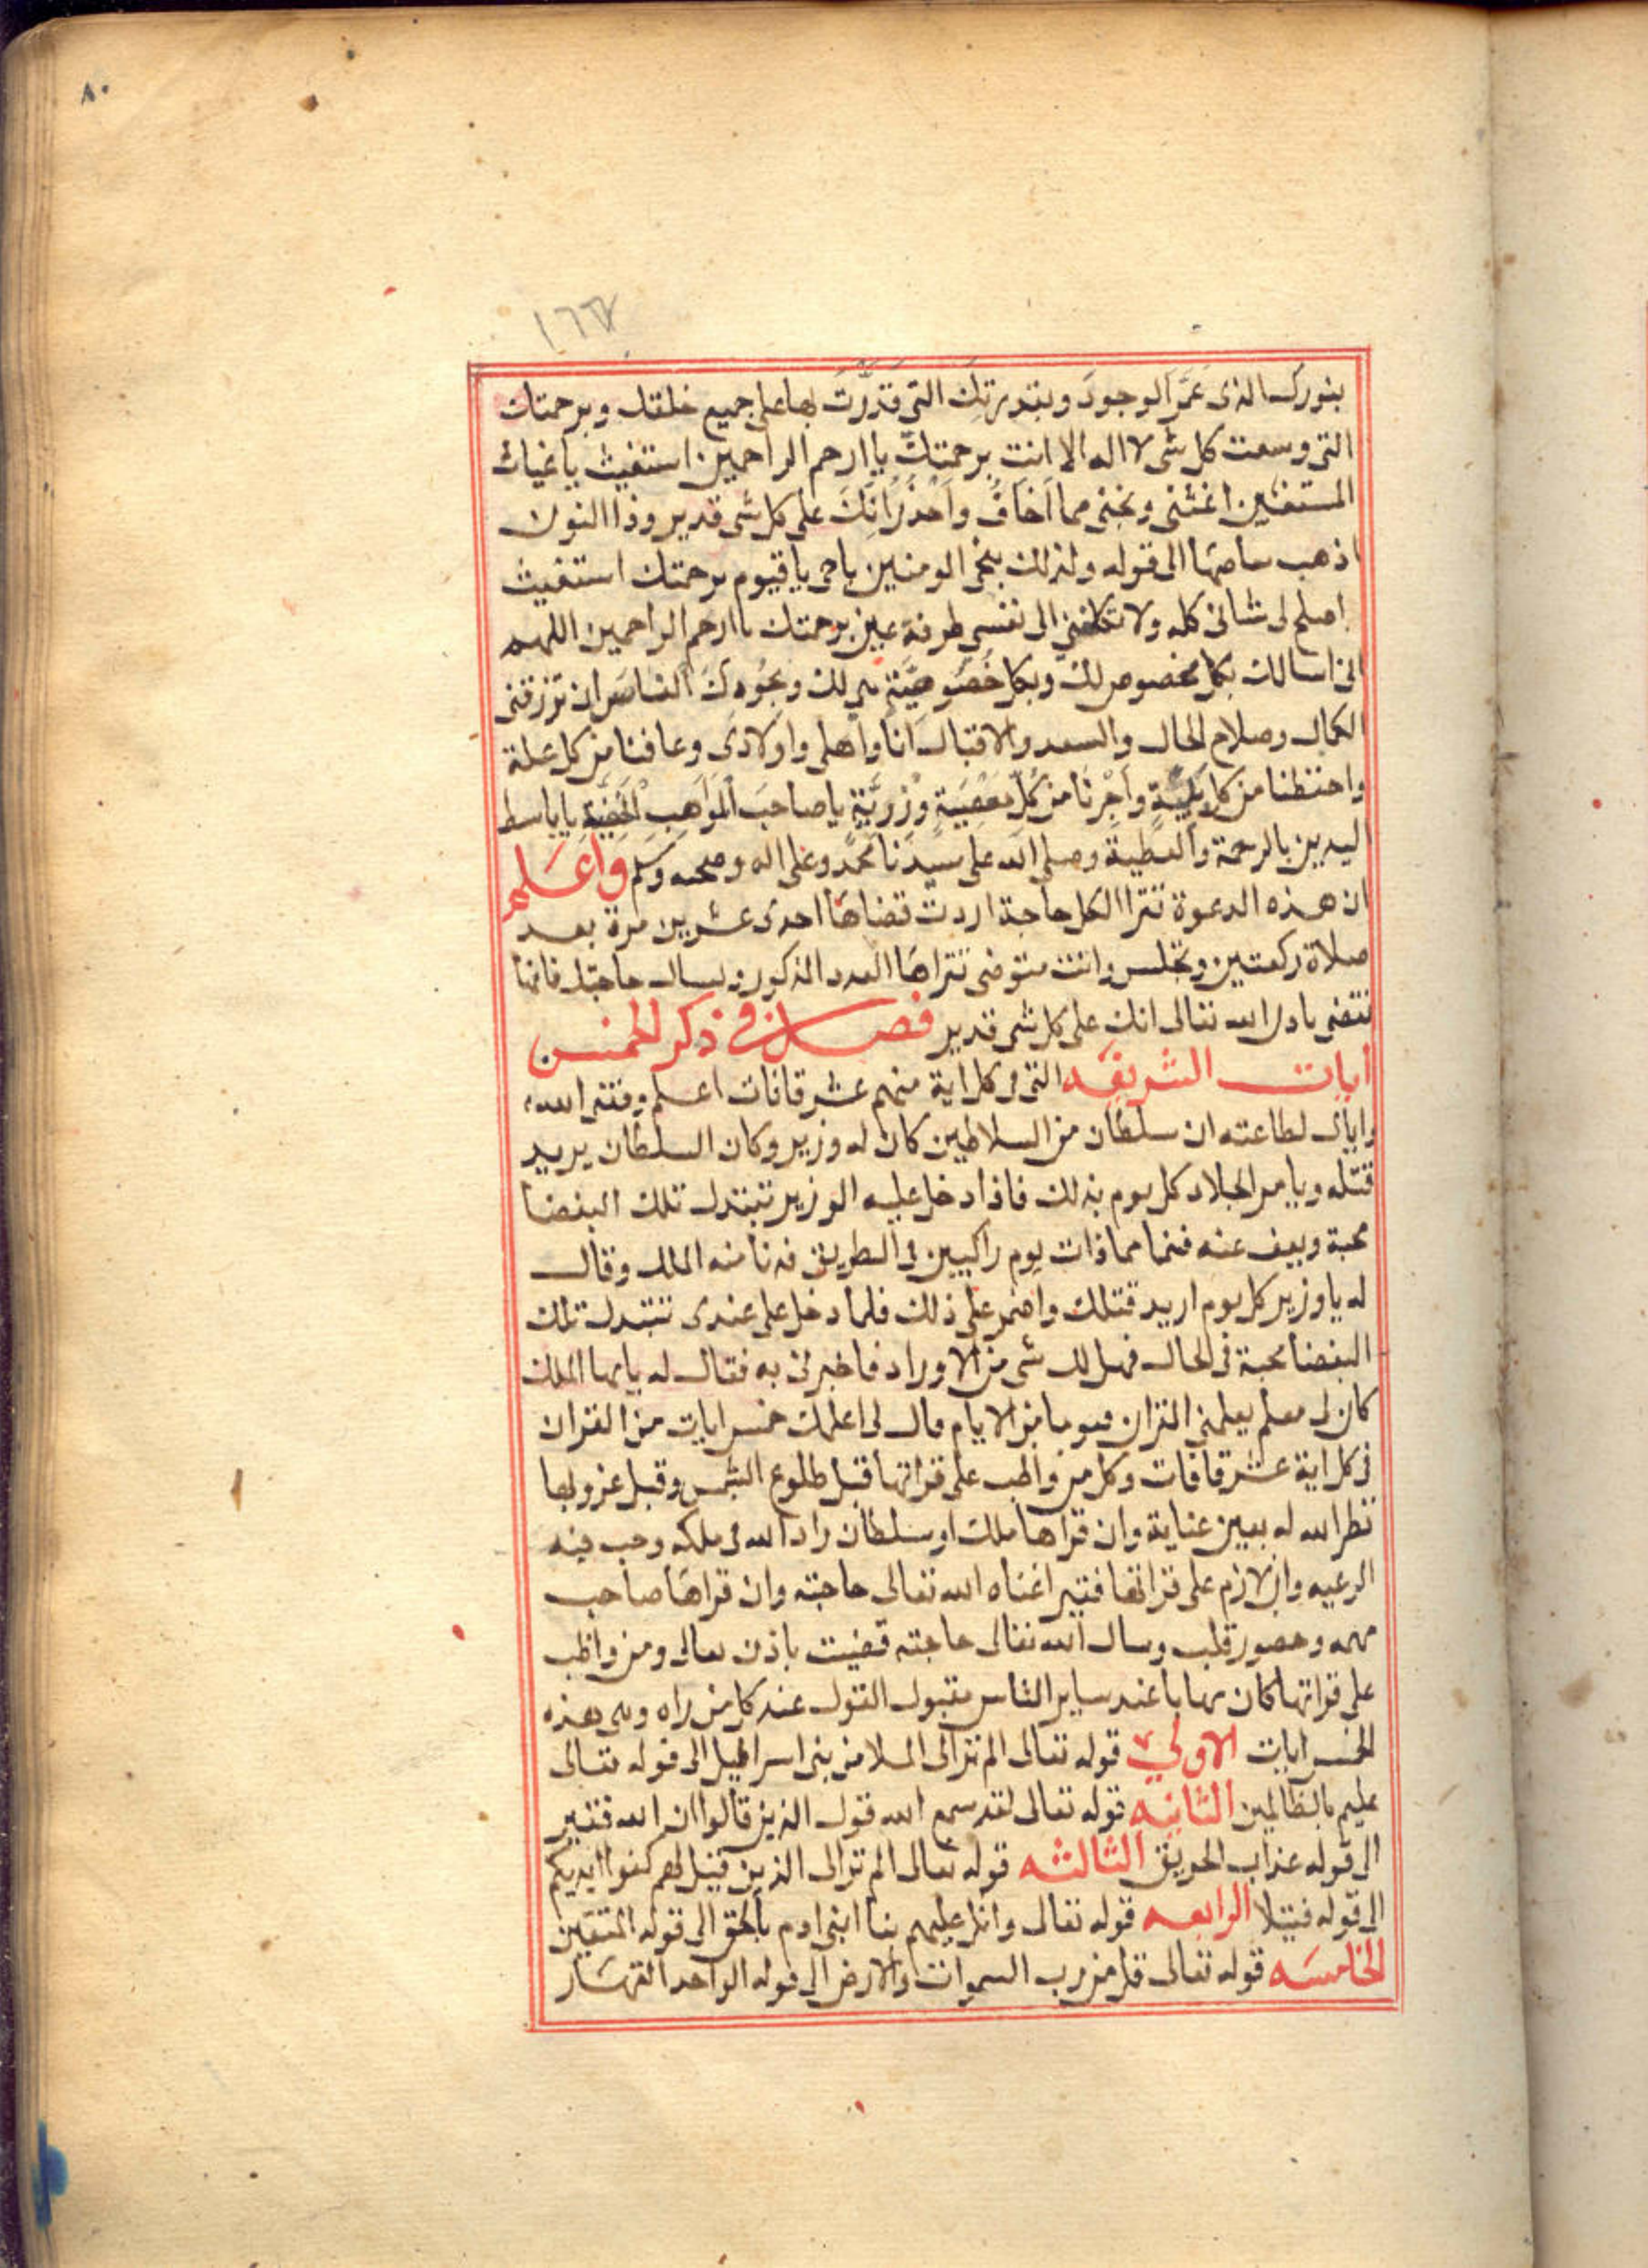 ٨٠
١٦٦٧
بنورك الذى عَمَّرَ الوجودَ وبقدرتِكَ التى قَدَّرْتَ بها على جميع خلقك وبرحمتك
التى وسعت كل شى لا اله الا انت برحمتِكَ يا ارحم الراحمين استغيث يا غياث
المستغيثين اغثنى ونجنى مما اَخَافُ واَحْذَرُ اِنَّكَ على كل شى قدير وذا النون
اذ ذهب مغاضبا الى قوله وكذلك ننجى المومنين ياحى يا قيوم برحمتك استغيث
اصلح لى شانى كله ولا تكلنى الى نفسى طرفة عين برحمتك يا ارحم الراحمين اللهم
انى اسالك بكل مخصوص لك وبكل خُصُوصِيَّةٍ هى لك وبجُودِكَ الخاص ان ترزقنى
الكمال وصلاح الحال والسعد والاقبال اَنَا واَهلى واَولادى وعافنا من كل علة
واحفظنا من كل بَلِيَّةٍ واَجِرْنَا من كُلِّ مَعْصِيَةٍ وزَرِيَّةٍ يا صاحبَ الْمَوَاهِبِ الْخَفِيَّةِ يا باسط
اليدين بالرحمة والعطية وصلى الله على سيدنا محمد وعلى اله وصحبه وَسلم واعلم
ان هذه الدعوة تقرا لكل حاجة اردت قضاها احدى عشرين مرة بعد
صلاة ركعتين وتجلس وانت متوضى تقراها العدد المذكور وتسال حاجتك فانها
تقضى باذن الله تعالى انك على كل شى قدير فصل فى ذكر الخمس
ايات الشريفه التى فى كل اية منهم عشر قافات اعلم وفقنى الله
واياك لطاعته ان سلطان من السلاطين كان له وزير وكان السلطان يريد
قتله ويامر الجلاد كل يوم بذلك فاذا دخل عليه الوزير تتبدل تلك البغضا
محبة ويعف عنه فبينما هما ذات يوم راكبين فى الطريق فدنا منه الملك وقال
له يا وزير كل يوم اريد قتلك واضمر على ذلك فلما دخل على عندى تتبدل تلك
البغضا محبة فى الحال فهل لك شى من الاوراد فاخبرنى به فقال له يايها الملك
كان لى معلم يعلمنى القران فيوما من الايام قال لى اعلمك خمس ايات من القران
فى كل اية عشر قافات وكل من واظب على قراتها قبل طلوع الشمس وقبل غروبها
نظر الله له بعين عناية وان قراها ملك او سلطان زاد الله فى ملكه وحب فيه
الرعيه وان لازم على قراتها فقير اغناه الله تعالى حاجته وان قراها صاحب
مهمه وحضور قلب وسال الله تعالى حاجته قضيت باذن تعالى ومن واظب
على قراتها كان مهابا عند ساير الناس مقبول القول عند كل من راه وهى هذه
الخمس ايات الاولى قوله تعالى الم تر الى الملا من بنى اسرائيل الى قوله تعالى
عليم بالظالمين الثانيه قوله تعالى لقد سمع الله قول الذين قالوا ان الله فقير
الى قوله عذاب الحريق الثالثه قوله تعالى الم تر الى الذين قيل لهم كفوا ايديكم
الى قوله فتيلا الرابعه قوله تعالى واتل عليهم نبا ابنى ادم بالحق الى قوله المتقين
الخامسَه قوله تعالى قل من رب السموات والارض الى قوله الواحد القهار